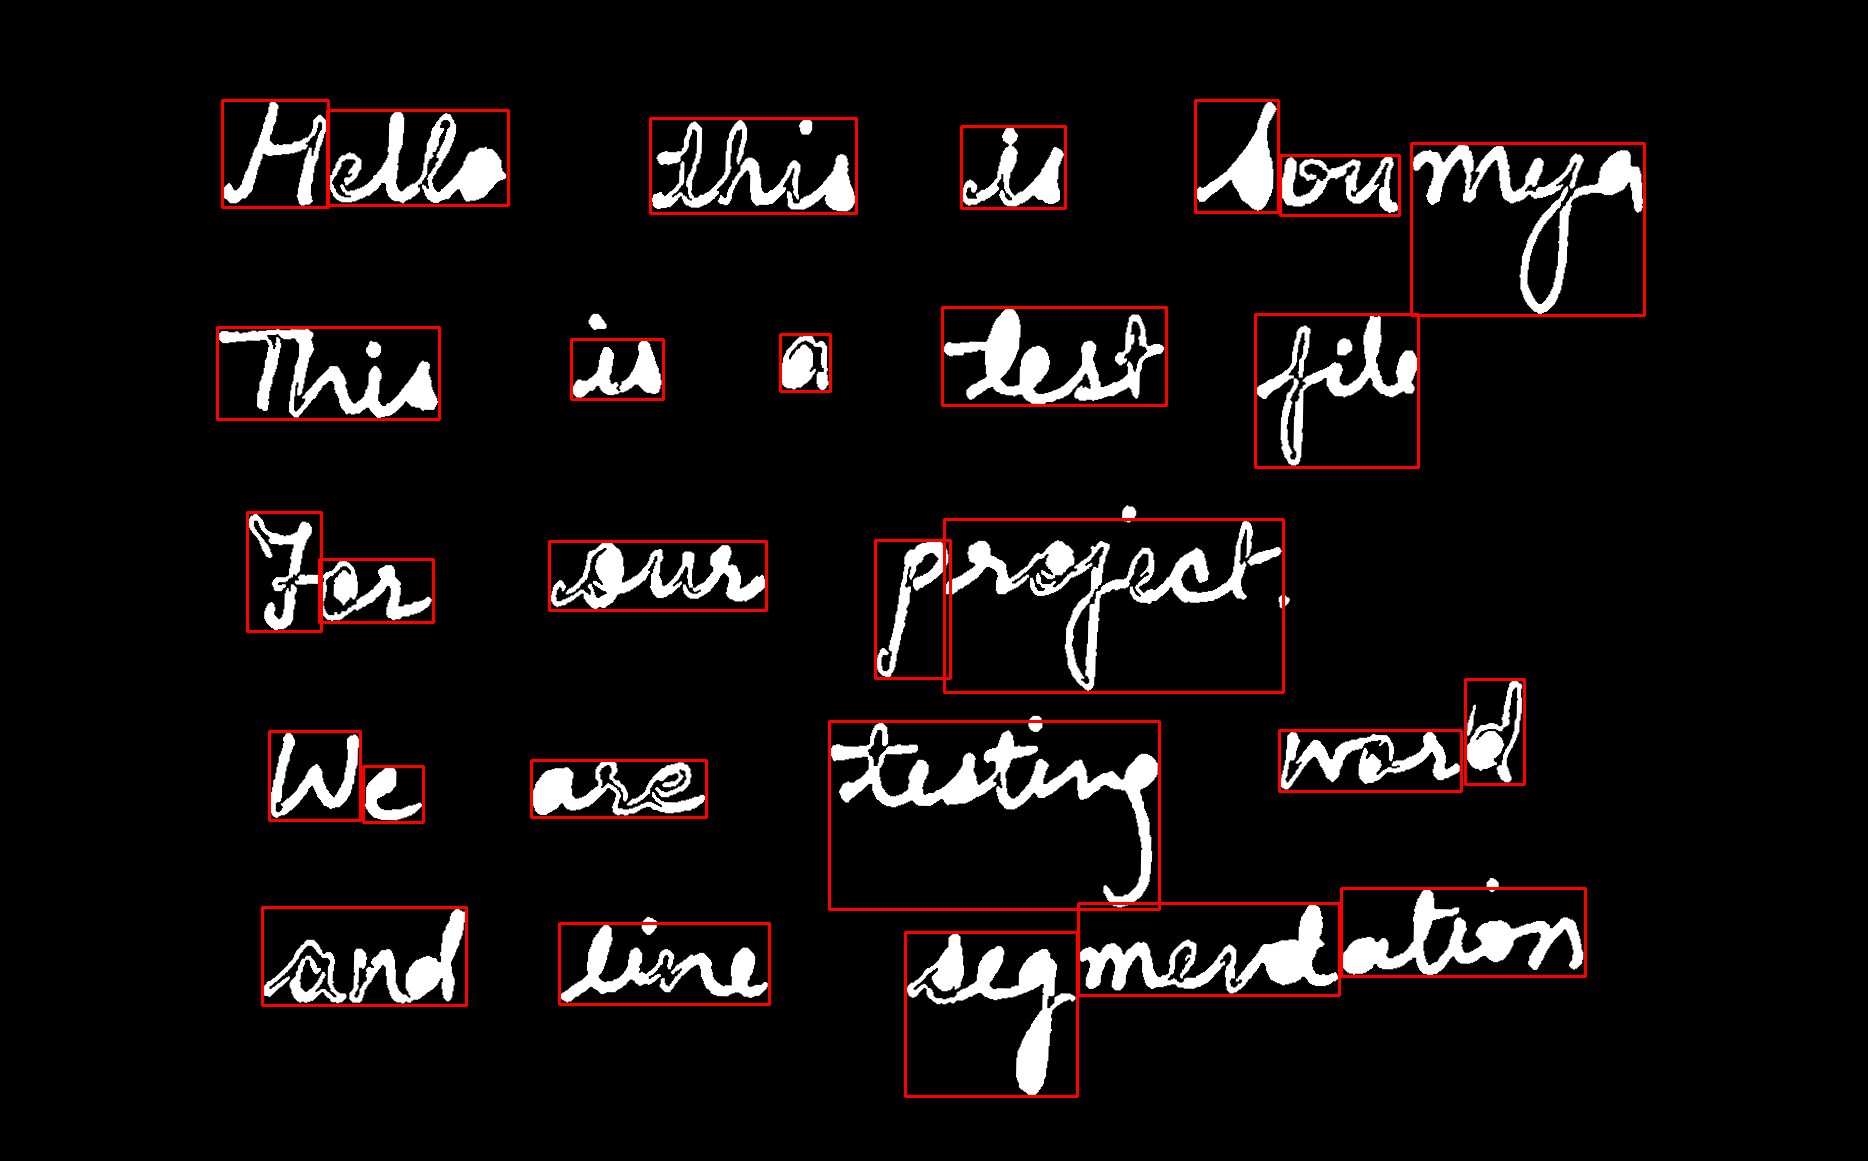 Hello this is Soumya
This is a test file
For our project.
We are testing word
and line segmendation